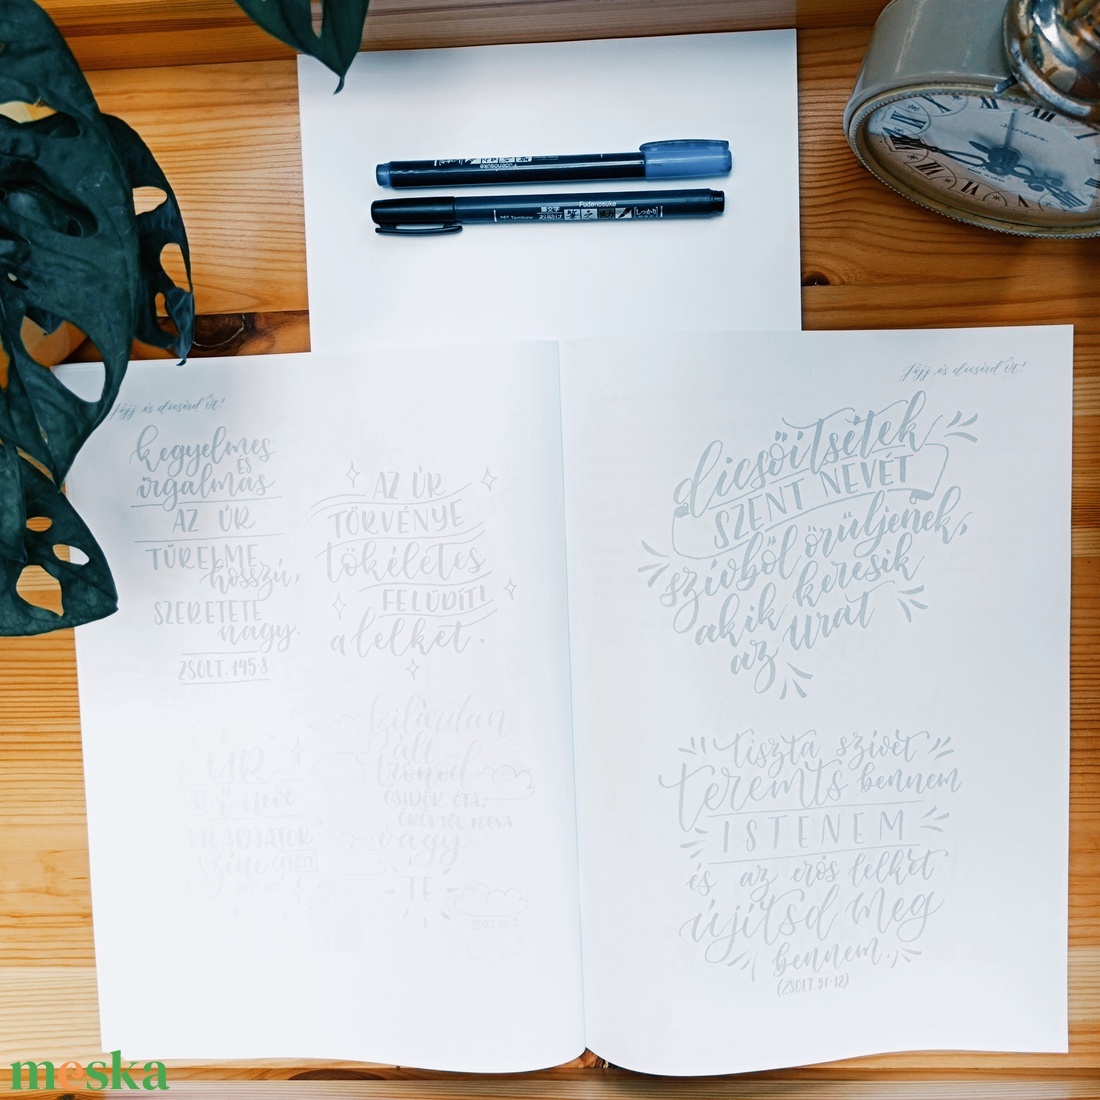 Fudenosuke
Fudenosuke
筆文字
お助け
Tombow
しっかり
Jöjj és dicsérd Őt!
kegyelmes
ÉS
irgalmas
AZ ÚR
TÜRELME
hosszú,
SZERETETE
nagy.
ZSOLT. 145:8
AZ ÚR
TÖRVÉNYE
tökéletes
FELÜDÍTI
a lelket.
ÚR
neve
színe ELŐTT
szilárdan
áll
trónod
ŐSIDŐK ÓTA,
ÖRÖKTŐL FOGVA
vagy
TE
Jöjj és dicsérd Őt!
dicsőítsétek
SZENT NEVÉT
szívből örüljenek,
akik keresik
az Urat
tiszta szívet
teremts bennem
ISTENEM
és az erős lelket
újítsd meg
bennem.
(ZSOLT. 51:12)
meska